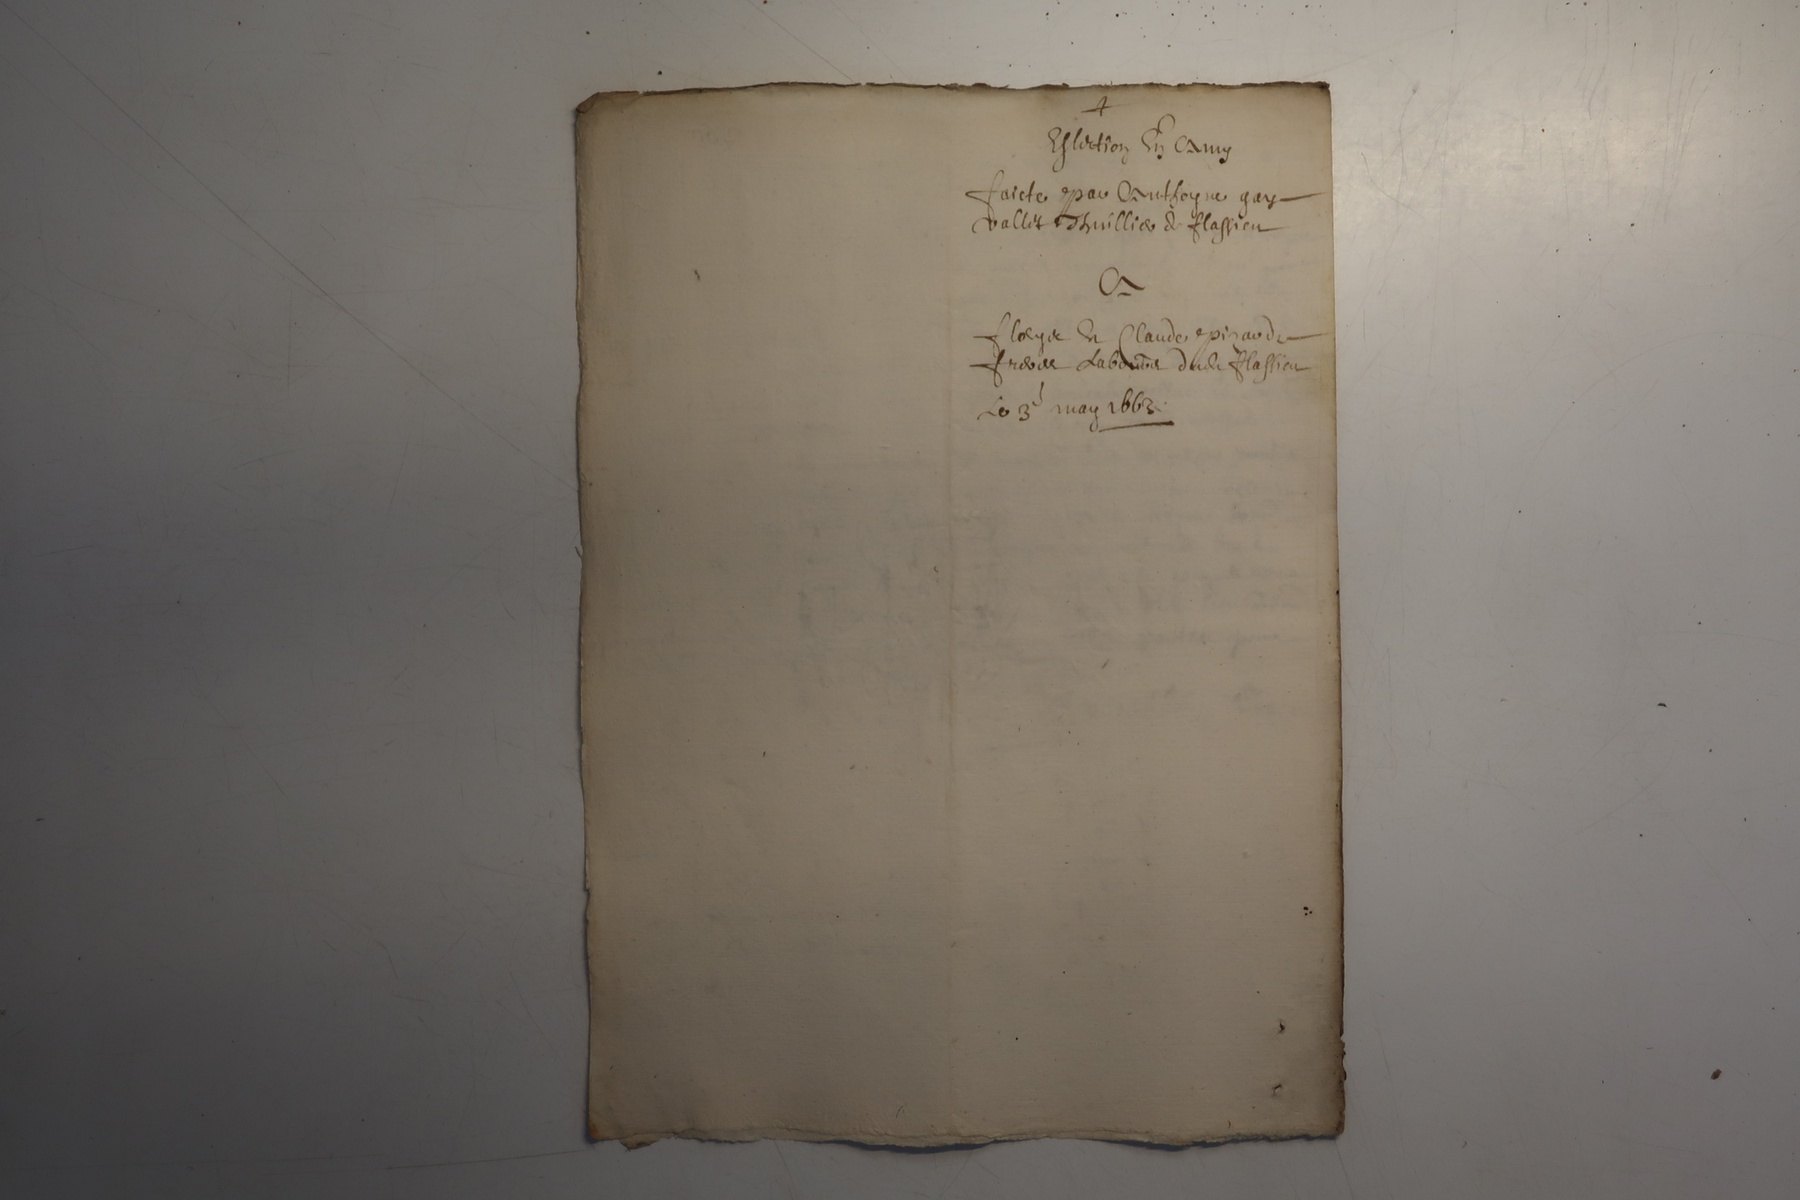 Eslection En Amy
faicte par Anthoyne gay
vallet Thuillier de flassieu
A
et Claude piraude
freres Laboureurs dudit flassieu
Le 3e may 1663